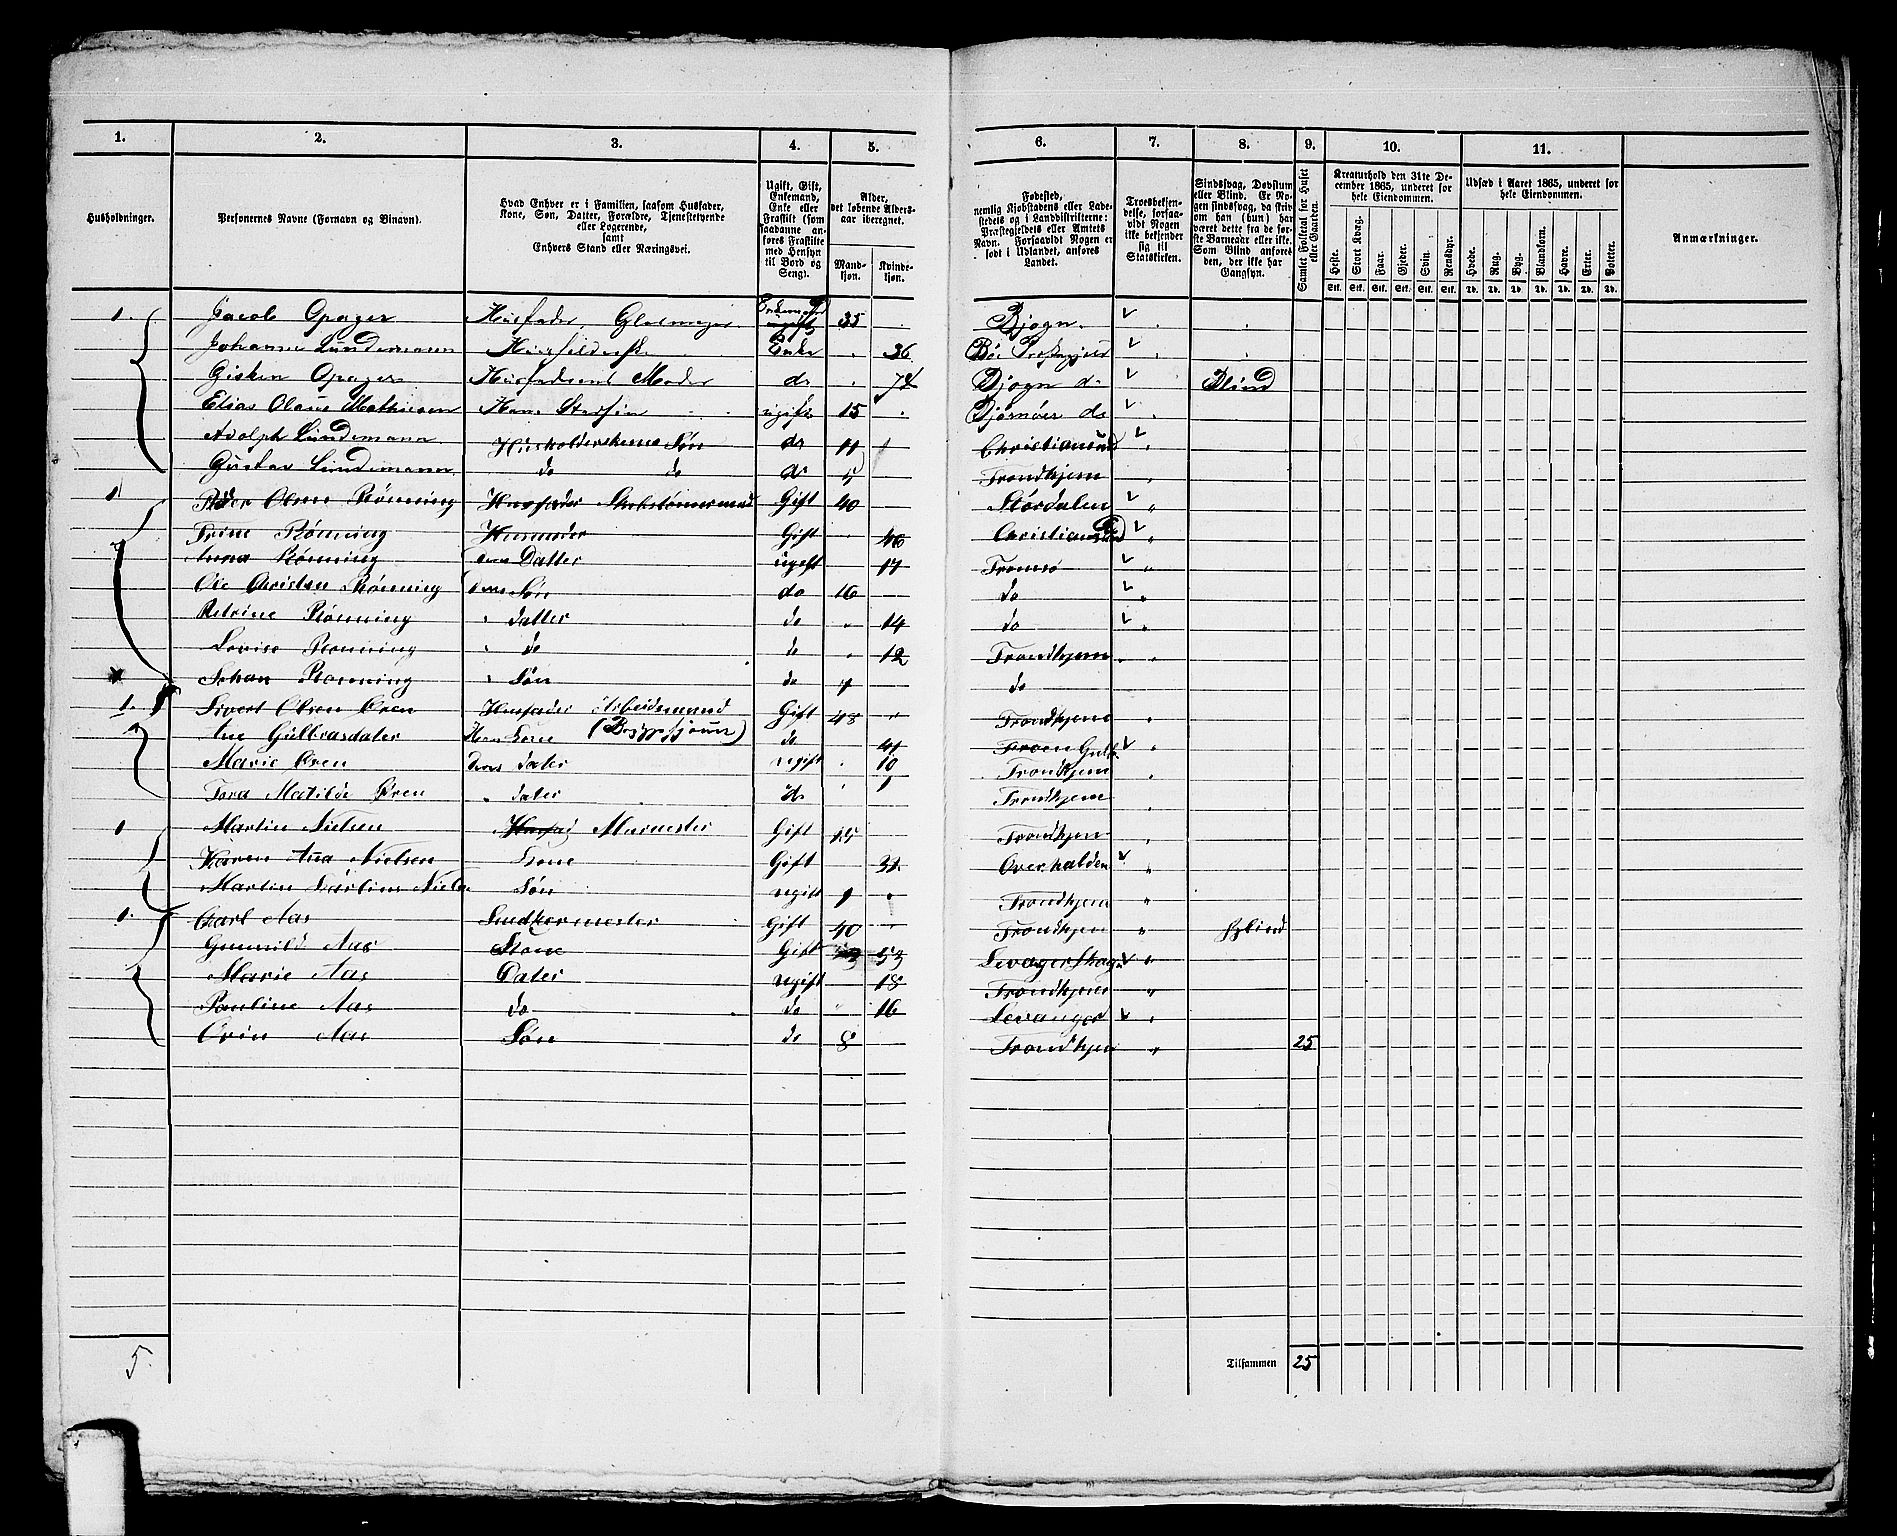 1. 2. 3. 4. 5. 6. 7. 8. 9. 10. 11.
Husholdninger.
Personernes Navne (Fornavn og Binavn).
Hvad Enhver er i Familien, saasom Husfader,
Kone, Søn, Datter, Forældre, Tjenestetyende
eller Logerende,
samt
Enhvers Stand eller Næringsvei.
Ugift, Gift,
Enkemand,
Enke eller
Fraskilt (som
saadanne an-
føres Fraskilte
med Hensyn
til Bord og
Seng).
Alder,
det løbende Alders-
aar iberegnet.
Mand-
kjøn.
Kvinde-
kjøn.
Fødested,
nemlig Kjøbstadens eller Lade-
stedets og i Landdistrikterne:
Præstegjeldets eller Amtets
Navn. Forsaavidt Nogen er
født i Udlandet, anføres
Landet.
Troesbekjen-
delse, forsaa-
vidt Nogen
ikke bekjender
sig til
Statskirken.
Sindssvag, Døvstum
eller Blind. Er No-
gen sindssvag, da skriv
om han (hun) har
været dette fra de før-
ste Barneaar eller ikke.
Som Blind anføres
den, der ikke har
Gangsyn.
Samlet Folketal for Huset
eller Gaarden.
Kreaturhold den 31te De-
cember 1865, underet for
hele Eiendommen.
Heste. Stort Kvæg. Faar. Gjeder. Svin. Rensdyr.
Stk. Stk. Stk. Stk. Stk. Stk.
Udsæd i Aaret 1865, underet for
hele Eiendommen.
Hvede. Rug. Byg. Blandkorn. Havre. Erter. Poteter.
Td. Td. Td. Td. Td. Td. Td.
Anmærkninger.
1. Jacob Opager Husfader, Glasmager ugift 35 Bjogn
Johanna Lundemann Enke 36 Bø
Gisken Opager Husfaderens Moder do 74 Bjogn do Blind
Elias Olaus Mathiesen Hans ugift 15 Bjørnøer do
Adolph Lundemann Husholderskens Søn do 11 Christiansund
Gustav Lundemann do do do 5 Trondhjem
1 Peder Olsen Rønning Husfader Gift 40 Stordalen
Trine Rønning Husmoder Gift 46
Anna Rønning deres Datter ugift 17 Tromsø
Ole Christan Rønning deres Søn do 16 do
Petrine Rønning " datter do " 14 do
Lovise Rønning " do do " 12 Trondhjem
Johan Rønning " Søn do 7 do
1. Sivert Olsen Øren Husfader Arbeidsmand Gift 48 Trondhjem
Ane Gulbrasdater Hans Kone do 41
Marie Øren deres dater ugift 10 Trondhjem
Tora Matilde Øren " dater do 1 Trondhjem
1 Martin Nielsen Murmester Gift Trondhjem
Karen Ana Nielsen Kone Gift 31 Overhalden
Søn ugift 1 Trondhjem
1. Carl Aas Gift 40 Trondhjem blind
Gunnild Aas Kone Gift 53
Marie Aas Dater ugift 18 Trondhjem
Pauline Aas do do " 16 Levanger
Aas Søn do 8 Trondhjem 25
5. Tilsammen 25